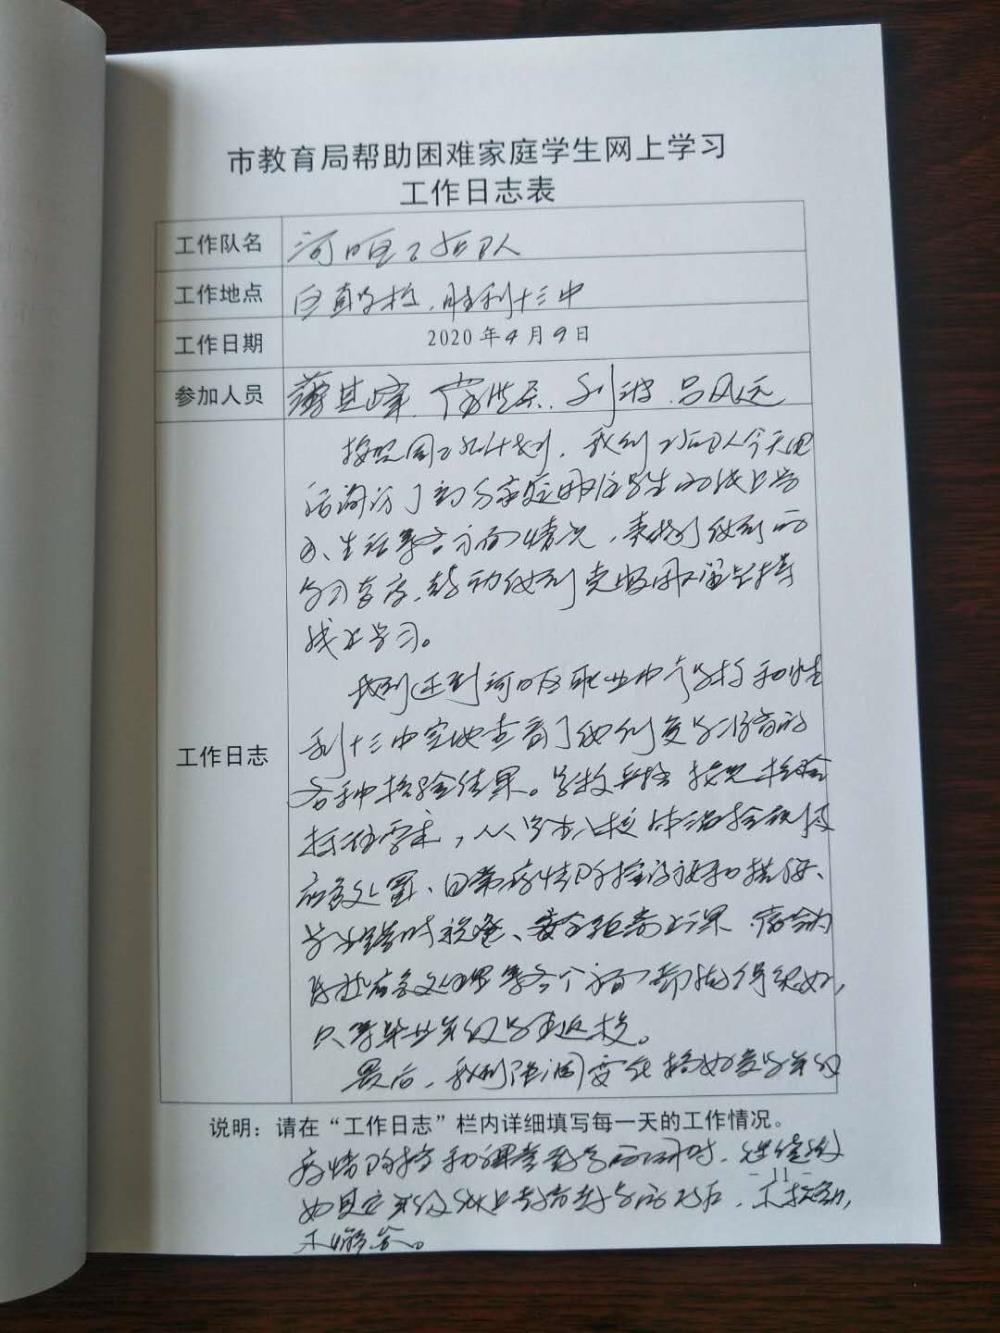 市教育局帮助困难家庭学生网上学习
工作日志表
工作队名 河口区工作队
工作地点 胜利十三中
工作日期 2020年4月9日
参加人员 薄其峰
按照周工作计划，我们工作队今天电
话询访了部分家庭困难学生的线上学
习、生活等各方面情况，
学习，鼓励他们克服困难坚持
线上学习。
工作日志
我们还到河口区职业中专学校和胜
利十三中实地查看了他们复学准备的
各种检验结果。学校严格按照检验
标准要求，从学生入校体温检测
应急处置、日常疫情防控和措施、
学生错时、安全距离上课
应急处理等各个方面都做得很好，
只等毕业年级学生返校。
最后，我们强调要在搞好复学年级
说明：请在“工作日志”栏内详细填写每一天的工作情况。
疫情防控和课堂教学的同时，继续做
- 11 -
好其它年级线上教学的工作，不放松，
不懈怠。